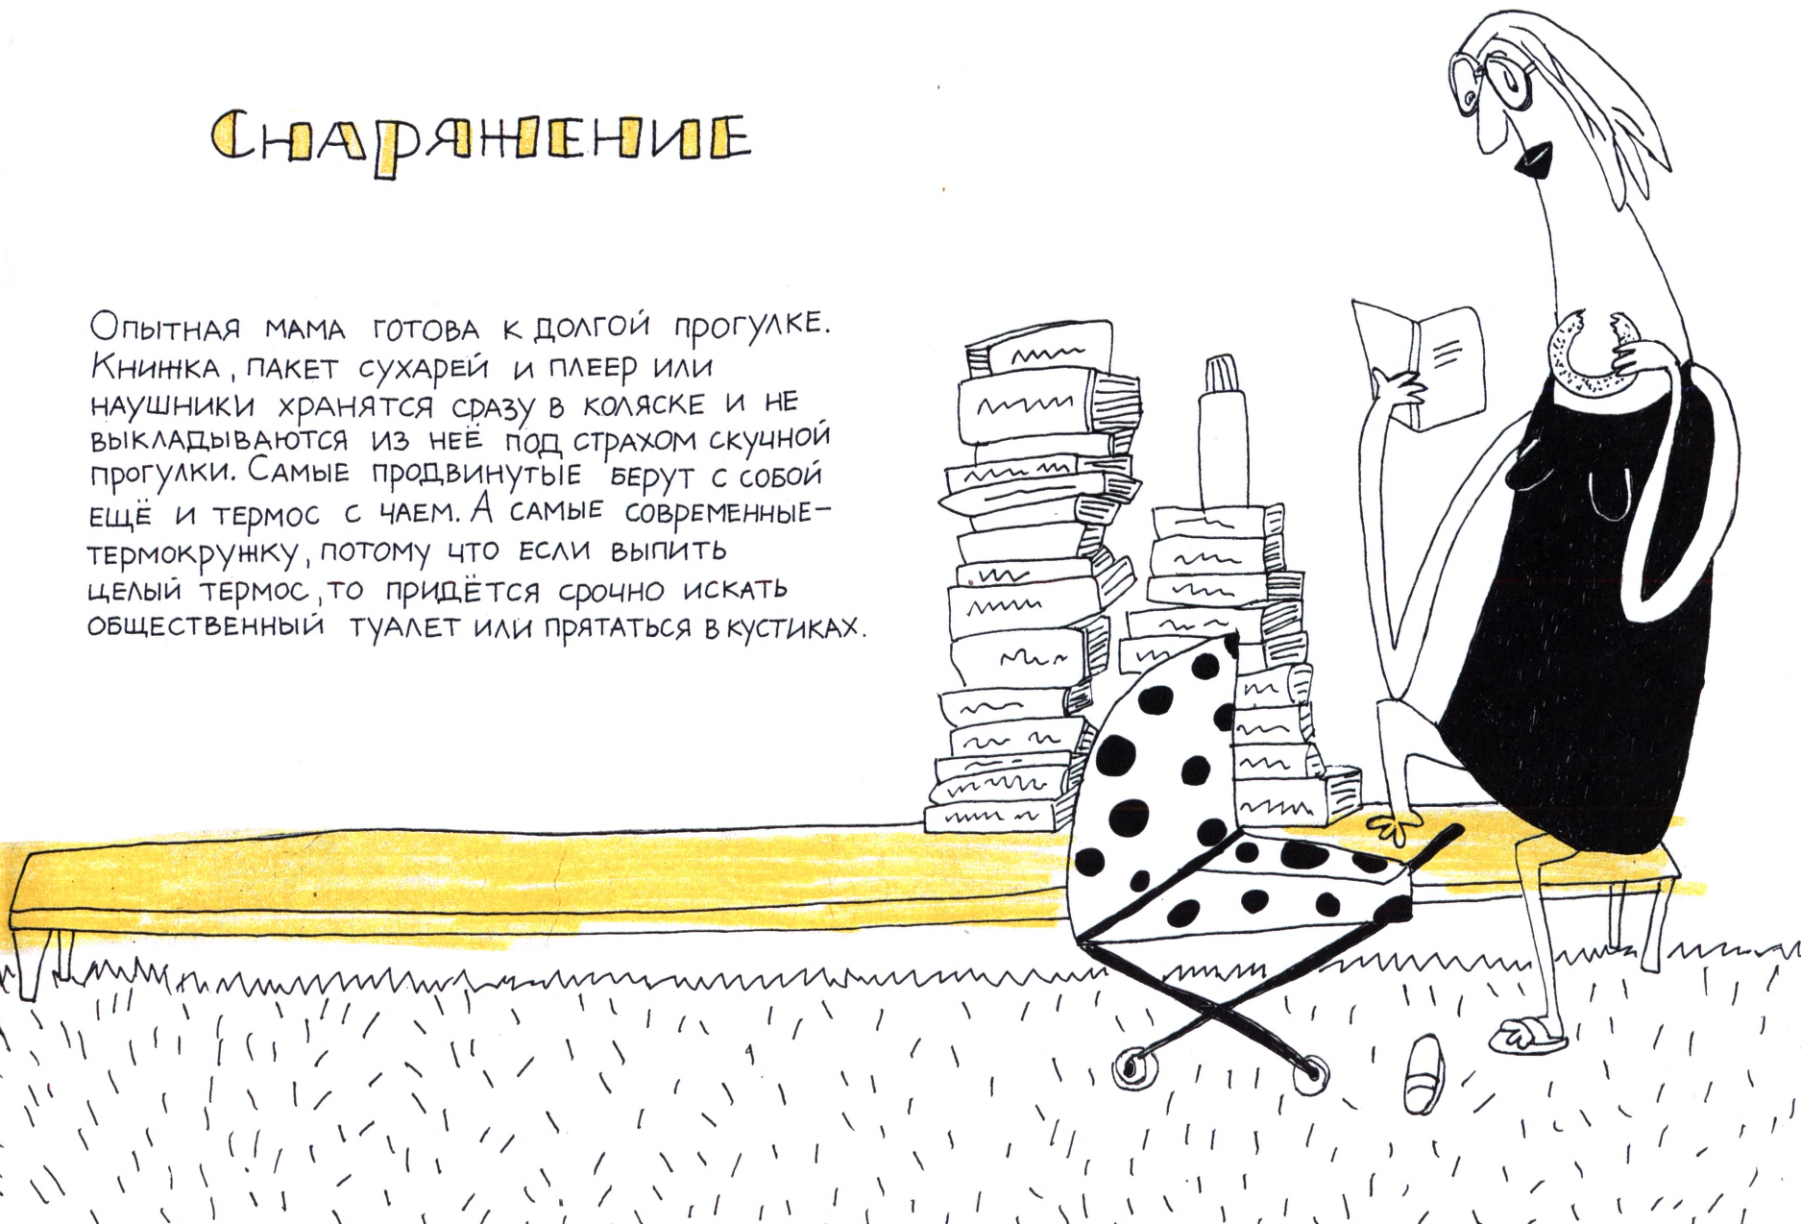 Снаряжение
Опытная мама готова к долгой прогулке.
Книжка, пакет сухарей и плеер или
наушники хранятся сразу в коляске и не
выкладываются из неё под страхом скучной
прогулки. Самые продвинутые берут с собой
ещё и термос с чаем. А самые современные–
термокружку, потому что если выпить
целый термос, то придётся срочно искать
общественный туалет или прятаться в кустиках.